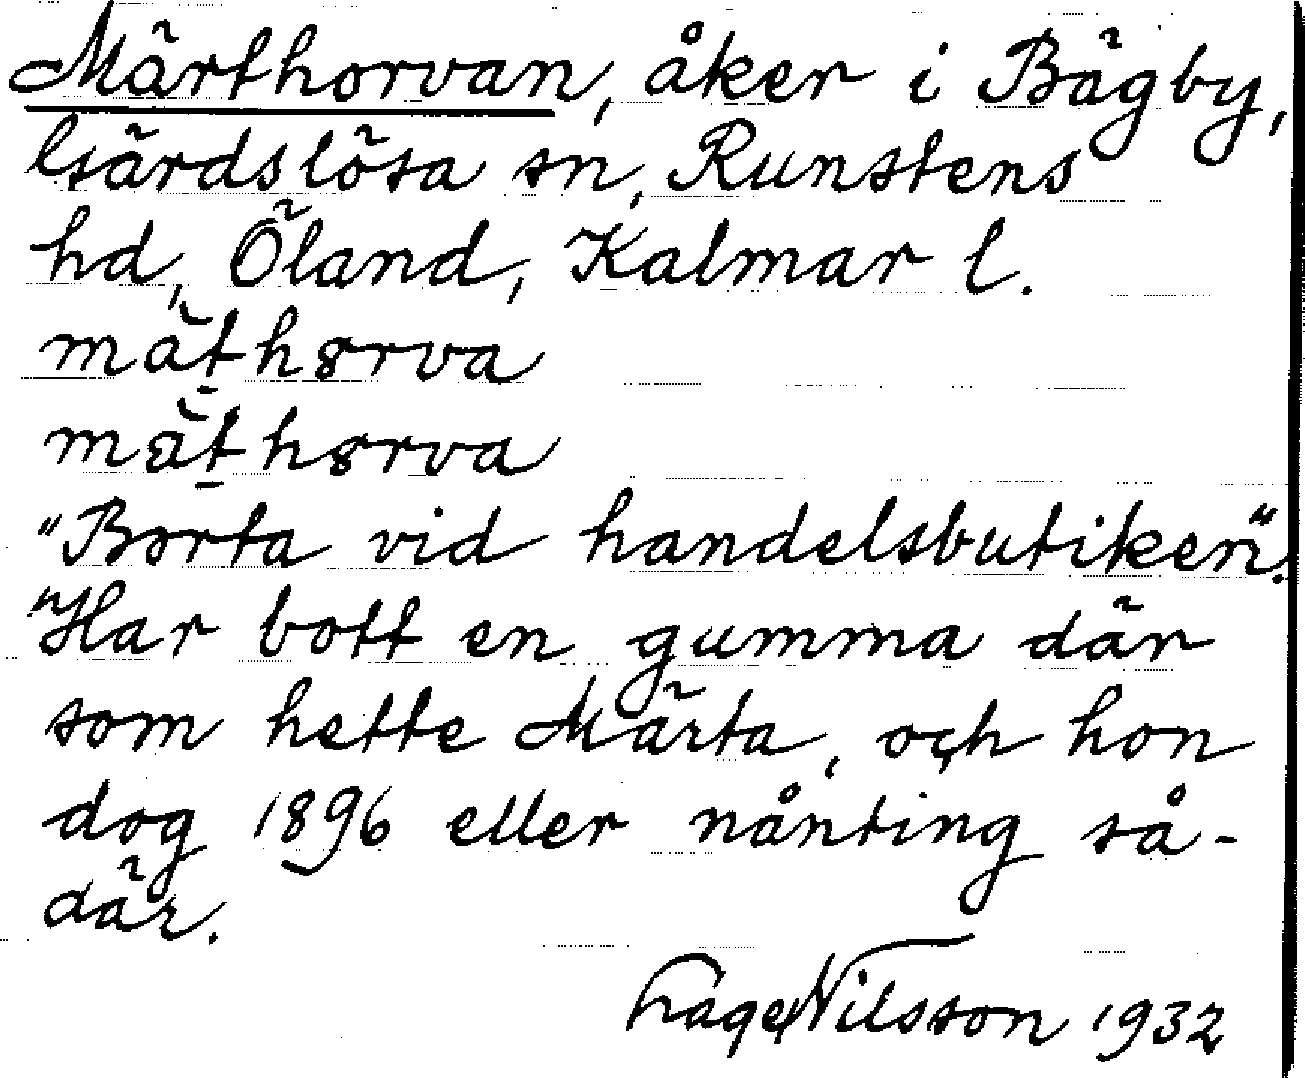 Märthorvan, åker i Bägby,
Gärdslösa sn, Runstens
hd, Öland, Kalmar l.
mäṯhȣrva
mäṯhȣrva
"Borta vid handelsbutiken".
"Har bott en gumma där
som hette Märta, och hon
dog 1896 eller nånting så-
där.
Nilsson 1932